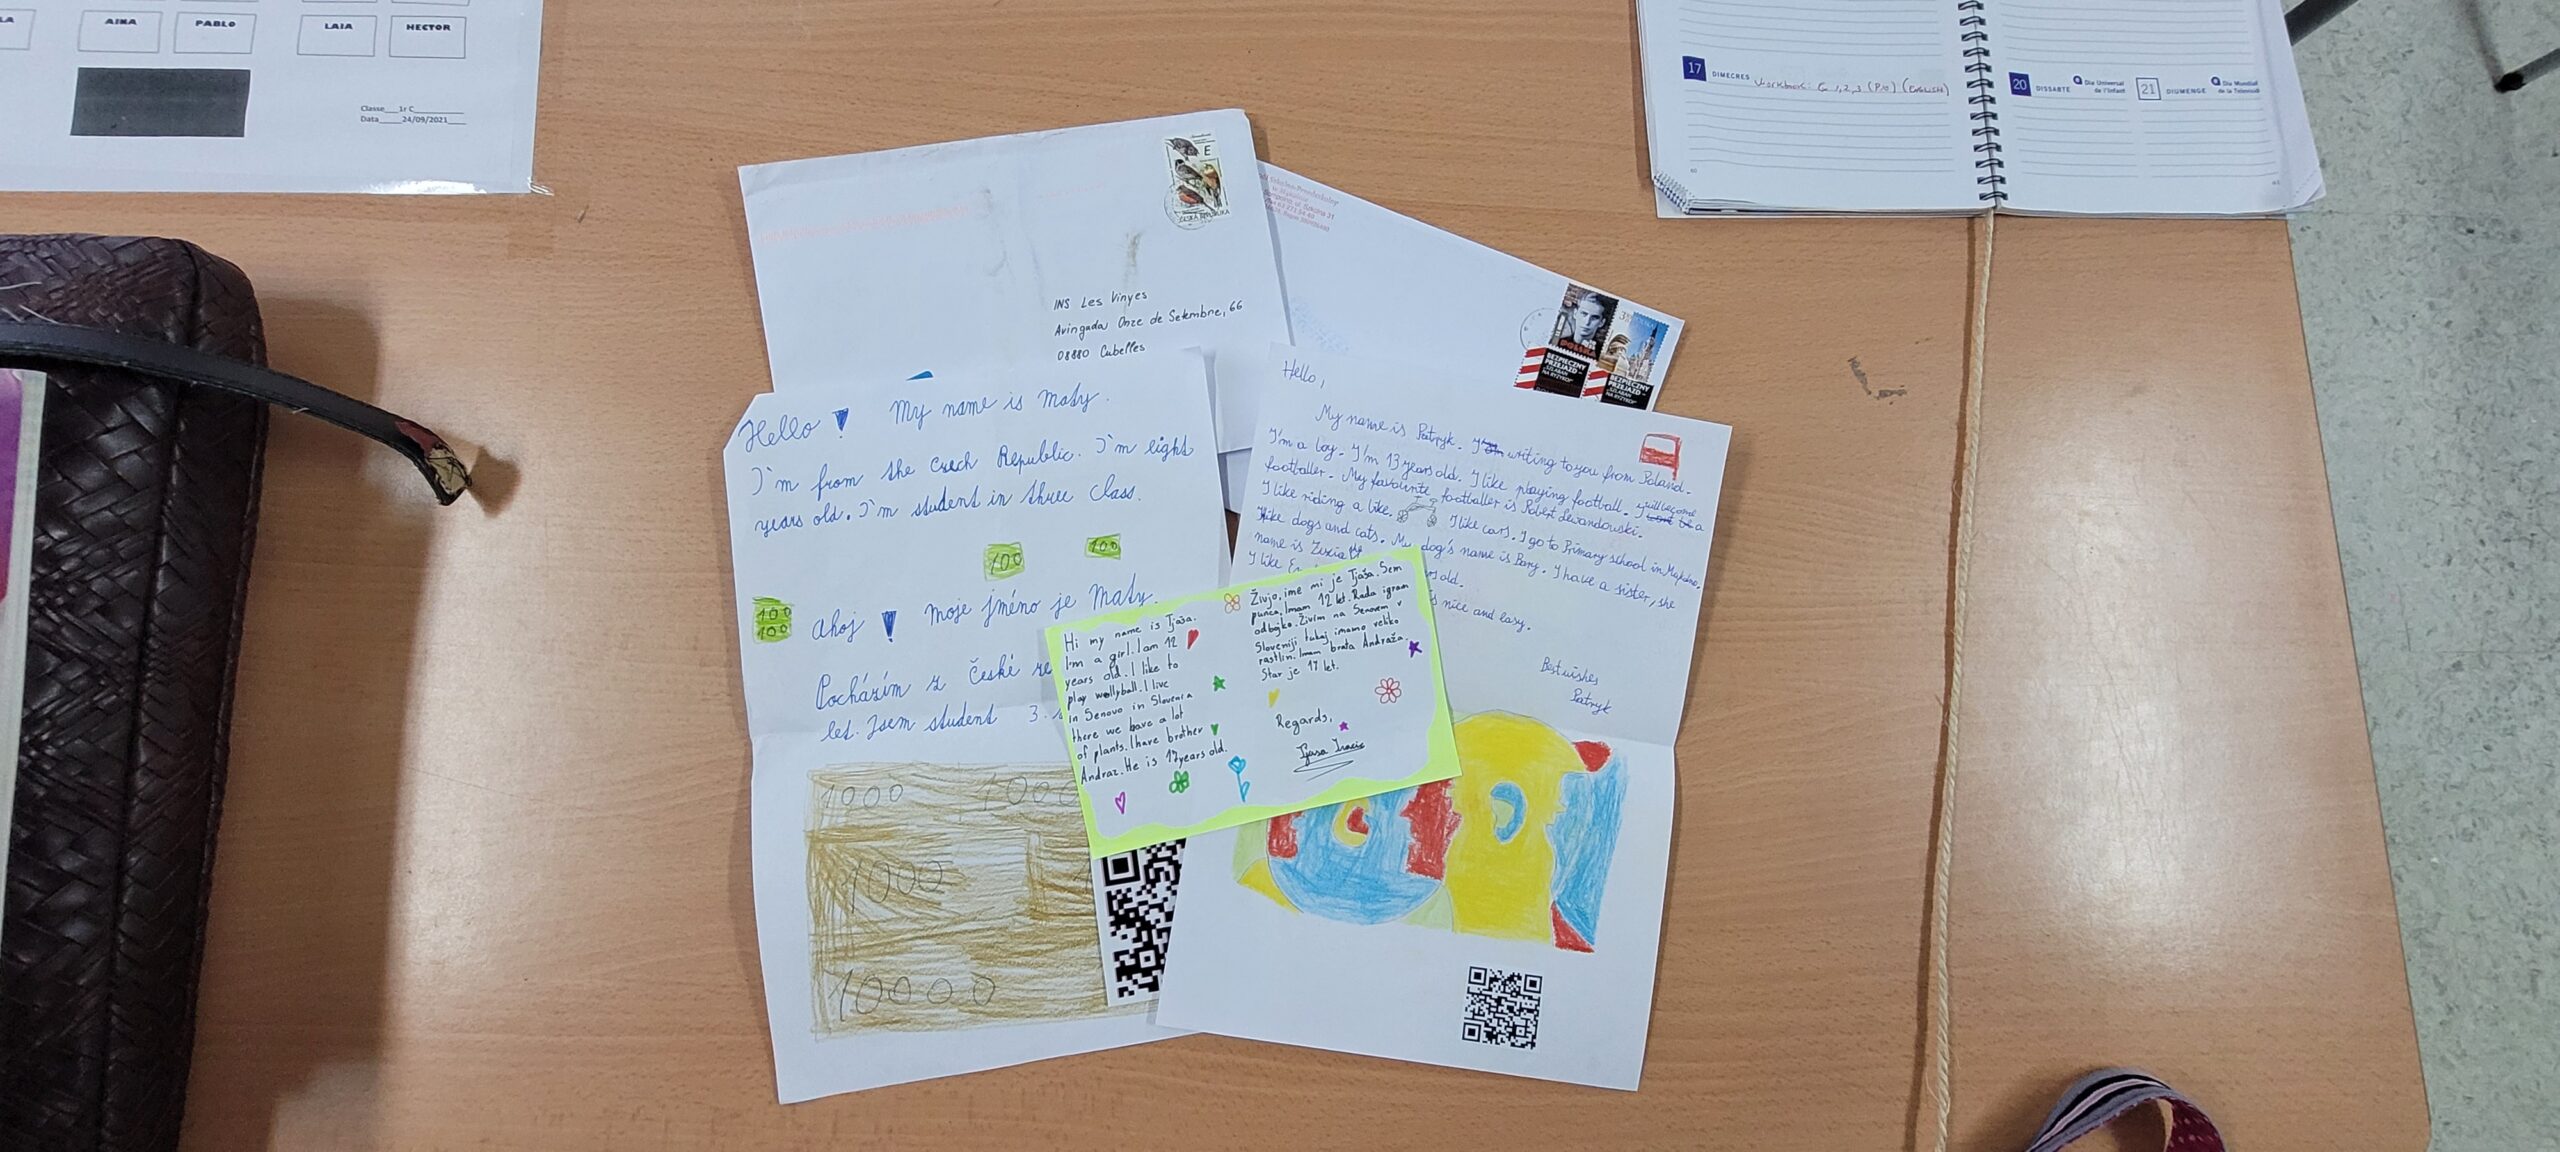 AINA
PABLO
LAIA
HECTOR
Classe___1r C
Data____24/09/2021
17 DIMECRES
Workbook: 6 1,2,3 (P10) (ENGLISH)
20 DISSABTE
Dia Universal
de l'Infant
21 DIUMENGE
Dia Mundial
de la Televisió
60
61
E
ČESKÁ REPUBLIKA
INS Les Vinyes
Avinguda Onze de Setembre, 66
08880 Cubelles
POLSKA
BEZPIECZNY
PRZEJAZD -
"SZLABAN
NA RYZYKO!"
BEZPIECZNY
PRZEJAZD -
"SZLABAN
NA RYZYKO!"
Hello! My name is Maty.
I'm from the Czech Republic. I'm eight
years old. I'm student in three class.
100
100
100
100
Ahoj! Moje jméno je Maty.
Pocházím z České
let. Jsem student 3.
1000 1000
1000
10000
Hello,
My name is Patryk. I writing to you from Poland.
I'm a boy. I'm 13 years old. I like playing football. I will become a
footballer. My favourite footballer is Robert Lewandowski.
I like riding a bike. I like cars. I go to Primary school in
I like dogs and cats. My dog's name is Bary. I have a sister, she
name is Zuzia
I like old.
is nice and easy.
Best wishes
Patryk
Hi my name is Tjaša.
I'm a girl. I am 12
years old. I like to
play wollyball. I live
in Senovo in Slovenia
there we have a lot
of plants. I have brother
Andraz. He is 17 years old.
Živjo, ime mi je Tjaša. Sem
punca. Imam 12 let. Rada igram
odbojko. Živim na Senovem v
Sloveniji tukaj imamo veliko
rastlin. Imam brata Andraža.
Star je 17 let.
Regards,